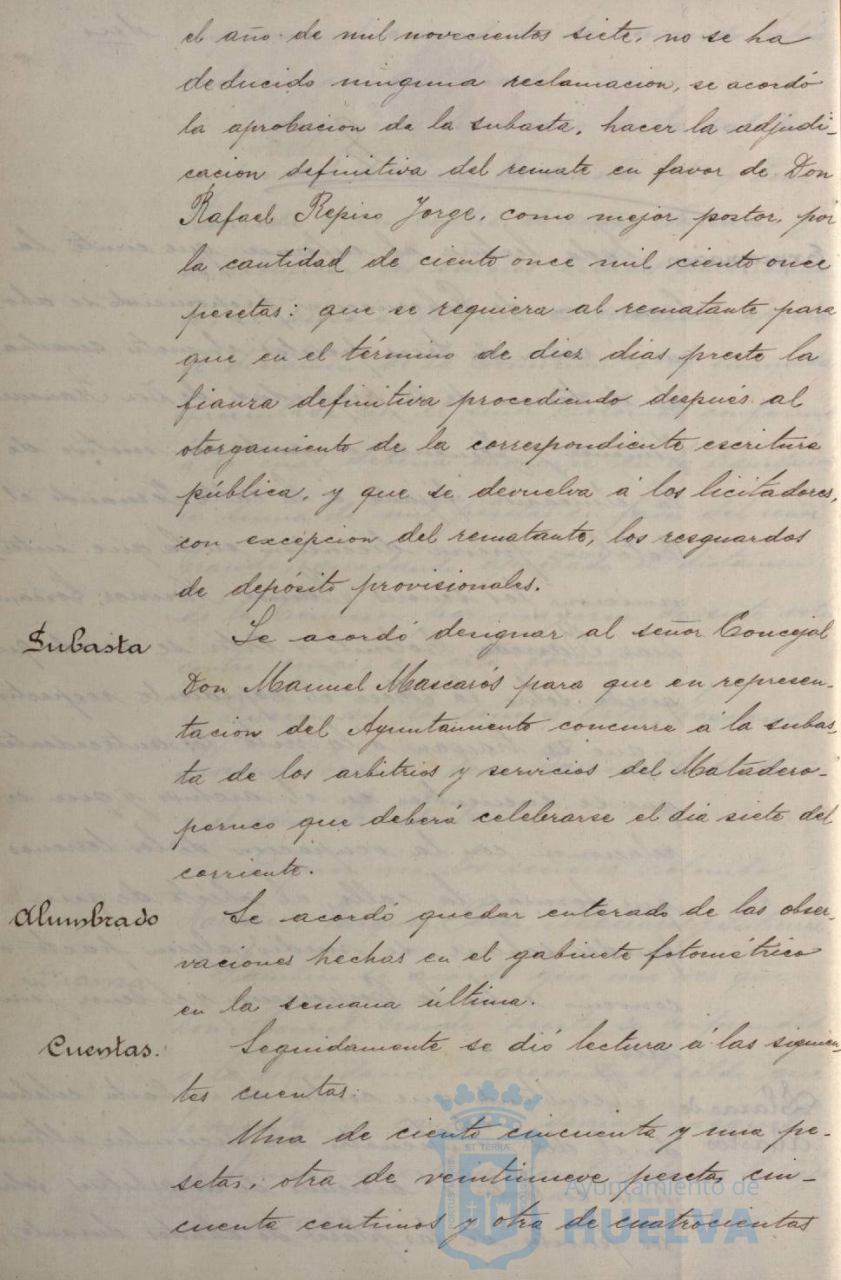 el año de mil novecientos siete, no se ha
deducido ninguna reclamacion, se acordó
la aprobacion de la subasta, hacer la adjudi-
cacion definitiva del remate en favor de Don
Rafael Repiso Jorge, como mejor postor, por
la cantidad de ciento once mil ciento once
pesetas: que se requiera al rematante para
que en el término de diez dias preste la
fianza definitiva procediendo después al
otorgamiento de la correspondiente escritura
pública, y que se devuelva á los licitadores,
con excepcion del rematante, los resguardos
de depósito provisionales.
Subasta
Se acordó designar al señor Concejal
Don Manuel Mascarós para que en represen-
tacion del Ayuntamiento concurra á la subas-
ta de los arbitrios y servicios del Matadero-
poruco que deberá celebrarse el dia siete del
corriente.
Alumbrado
Se acordó quedar enterado de las obser-
vaciones hechas en el gabinete fotométrico
en la semana última.
Cuentas.
Seguidamente se dió lectura á las siguien-
tes cuentas:
Una de ciento cincuenta y una pe-
setas, otra de veintinueve pesetas cin-
cuenta centimos y otra de cuatrocientas
Ayuntamiento de
HUELVA